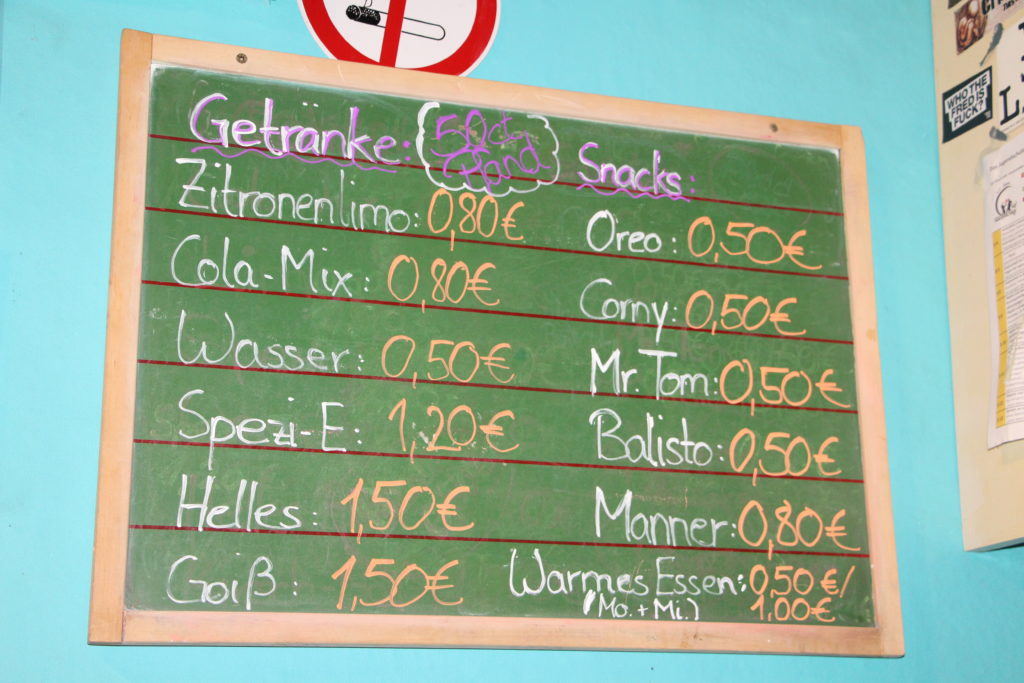 Getränke: 50ct Pfand
Zitronenlimo: 0,80€
Cola-Mix: 0,80€
Wasser: 0,50€
Spezi-E: 1,20€
Helles: 1,50€
Goiß: 1,50€
Snacks:
Oreo: 0,50€
Corny: 0,50€
Mr. Tom: 0,50€
Balisto: 0,50€
Manner: 0,80€
Warmes Essen: 0,50€/
(Mo. + Mi.) 1,00€
WHO THE
FRED IS
FUCK?